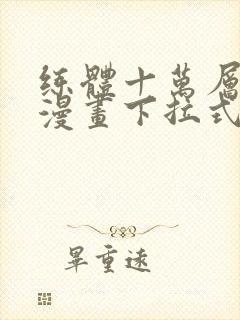 練體十萬層
漫畫下拉式
畢重遠